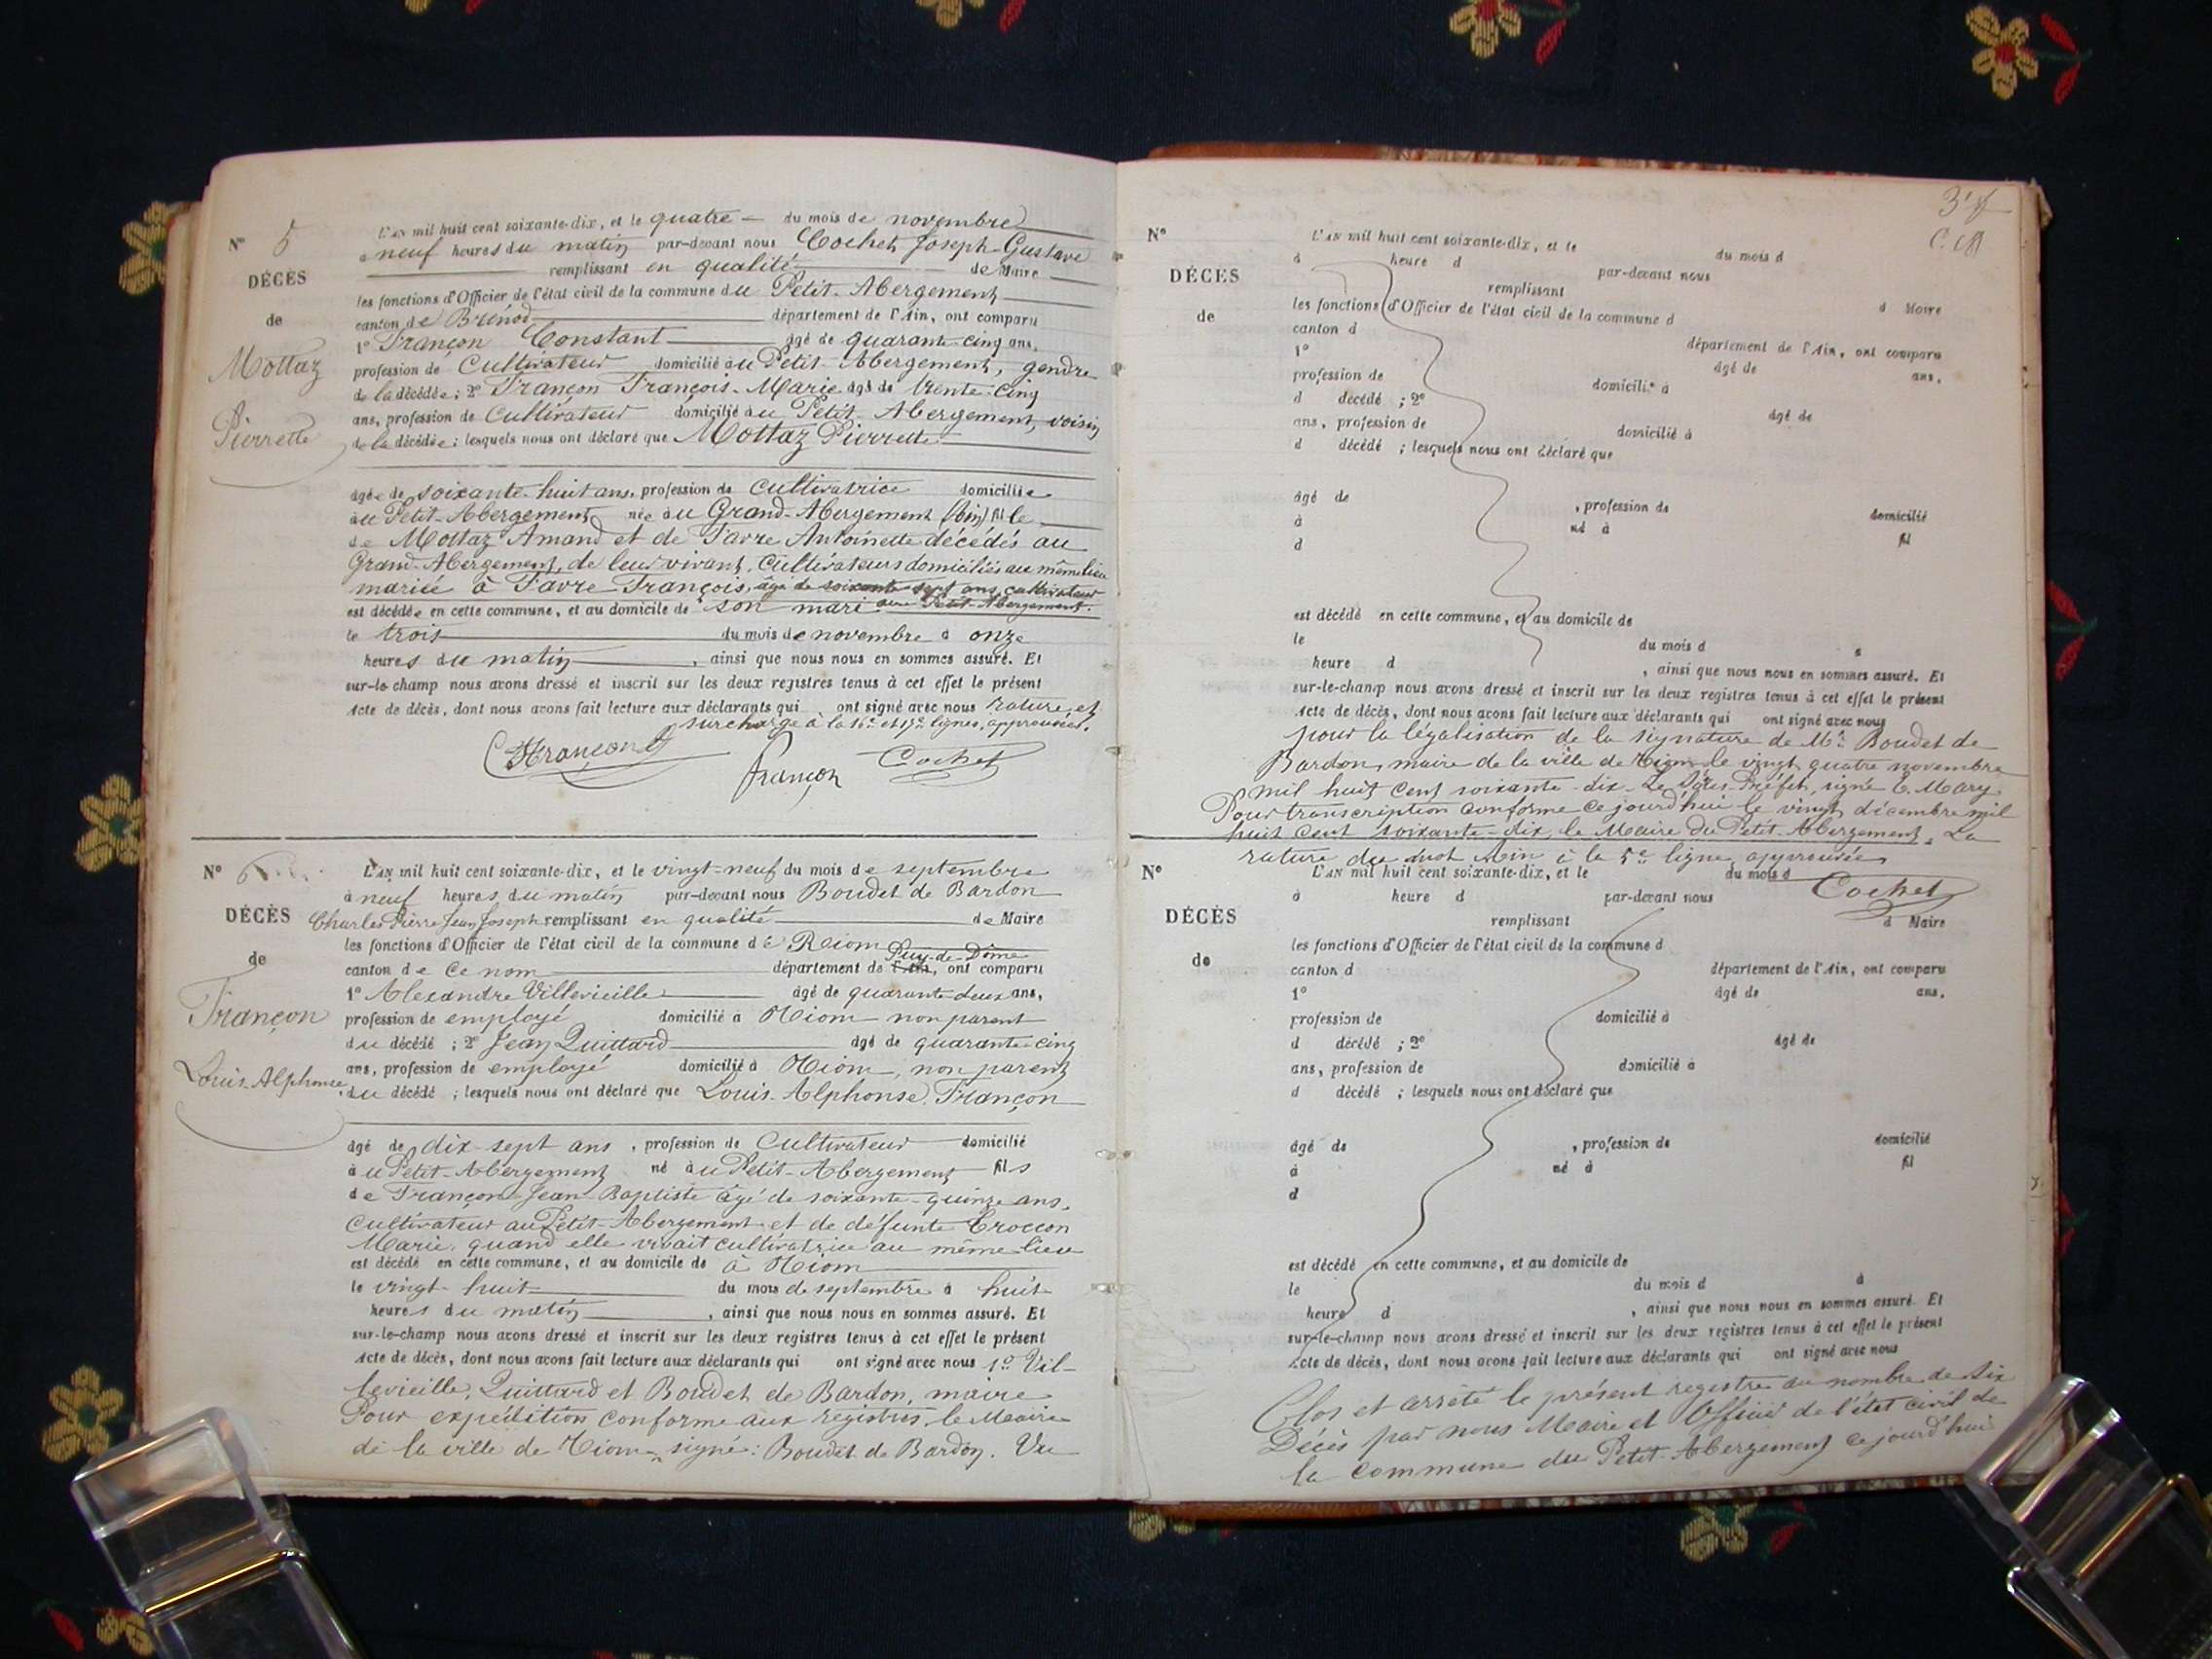 N° 5
DÉCÈS
de
Mottaz
Pierrette
L'AN mil huit cent soixante-dix, et le quatre — du mois de novembre
à neuf heures du matin par-devant nous Cochet Joseph-Gustave
remplissant en qualité de Maire
les fonctions d'Officier de l'état civil de la commune du Petit-Abergement
canton de Brénod département de l'Ain, ont comparu
1° Françon Constant âgé de quarante-cinq ans,
profession de Cultivateur domicilié au Petit-Abergement, gendre
de la décédée; 2° Françon François-Marie âgé de trente-cinq
ans, profession de Cultivateur domicilié au Petit-Abergement, voisin
de la décédée; lesquels nous ont déclaré que Mottaz Pierrette
âgée de soixante-huit ans, profession de Cultivatrice domiciliée
au Petit-Abergement née au Grand-Abergement (Ain) fille
de Mottaz Amand et de Favre Antoinette décédés au
Grand-Abergement, de leur vivant, Cultivateurs domiciliés au même lieu
mariée à Favre François, âgé de soixante-sept ans, cultivateur
est décédée en cette commune, et au domicile de son mari au Petit-Abergement.
le trois du mois de novembre à onze
heures du matin, ainsi que nous nous en sommes assuré. Et
sur-le-champ nous avons dressé et inscrit sur les deux registres tenus à cet effet le présent
Acte de décès, dont nous avons fait lecture aux déclarants qui ont signé avec nous rature et
surcharge à la 16e et 17e lignes, approuvées.
Françon
françon
Cochet
N° 6
DÉCÈS
de
Françon
Louis-Alphonse
L'AN mil huit cent soixante-dix, et le vingt-neuf du mois de septembre
à neuf heures du matin par-devant nous Boudet de Bardon
Charles Pierre Jean Joseph remplissant en qualité de Maire
les fonctions d'Officier de l'état civil de la commune de Riom
Puy-de-Dôme
canton de ce nom département de l'Ain, ont comparu
1° Alexandre Villevieille âgé de quarante-deux ans,
profession de employé domicilié à Riom non parent
du décédé; 2° Jean Quittard âgé de quarante-cinq
ans, profession de employé domicilié à Riom, non parent
du décédé; lesquels nous ont déclaré que Louis-Alphonse Françon
âgé de dix-sept ans, profession de Cultivateur domicilié
au Petit-Abergement né au Petit-Abergement fils
de Françon Jean-Baptiste âgé de soixante-quinze ans,
Cultivateur au Petit-Abergement et de défunte Croccon
Marie, quand elle vivait cultivatrice au même lieu
est décédé en cette commune, et au domicile de à Riom
le vingt-huit du mois de septembre à huit
heures du matin, ainsi que nous nous en sommes assuré. Et
sur-le-champ nous avons dressé et inscrit sur les deux registres tenus à cet effet le présent
Acte de décès, dont nous avons fait lecture aux déclarants qui ont signé avec nous 1° Vil-
levieille, Quittard et Boudet de Bardon, maire
Pour expédition conforme aux registres, le Maire
de la ville de Riom, signé: Boudet de Bardon. Vu
N°
DÉCÈS
de
L'AN mil huit cent soixante-dix, et le du mois d
à heure d par-devant nous
remplissant d Maire
les fonctions d'Officier de l'état civil de la commune d
canton d département de l'Ain, ont comparu
1° âgé de ans,
profession de domicilié à
d décédé ; 2° âgé de
ans, profession de domicilié à
d décédé ; lesquels nous ont déclaré que
âgé de , profession de domicilié
à né à fil
d
est décédé en cette commune, et au domicile de
le du mois d à
heure d , ainsi que nous nous en sommes assuré. Et
sur-le-champ nous avons dressé et inscrit sur les deux registres tenus à cet effet le présent
Acte de décès, dont nous avons fait lecture aux déclarants qui ont signé avec nous
pour la légalisation de la signature de Mr Boudet de
Bardon, maire de la ville de Riom le vingt quatre novembre
mil huit cent soixante-dix. Le Sous-Préfet, signé E. Mary
Pour transcription conforme ce jourd'hui le vingt décembre mil
huit cent soixante-dix, le Maire du Petit-Abergement. La
rature du mot Ain à la 5e ligne approuvée
Cochet
N°
DÉCÈS
de
L'AN mil huit cent soixante-dix, et le du mois d
à heure d par-devant nous
remplissant d Maire
les fonctions d'Officier de l'état civil de la commune d
canton d département de l'Ain, ont comparu
1° âgé de ans,
profession de domicilié à
d décédé ; 2° âgé de
ans, profession de domicilié à
d décédé ; lesquels nous ont déclaré que
âgé de , profession de domicilié
à né à fil
d
est décédé en cette commune, et au domicile de
le du mois d à
heure d , ainsi que nous nous en sommes assuré. Et
sur-le-champ nous avons dressé et inscrit sur les deux registres tenus à cet effet le présent
Acte de décès, dont nous avons fait lecture aux déclarants qui ont signé avec nous
Clos et arrêté le présent registre au nombre de six
Décès par nous Maire et Officier de l'état civil de
la commune du Petit-Abergement ce jourd'hui